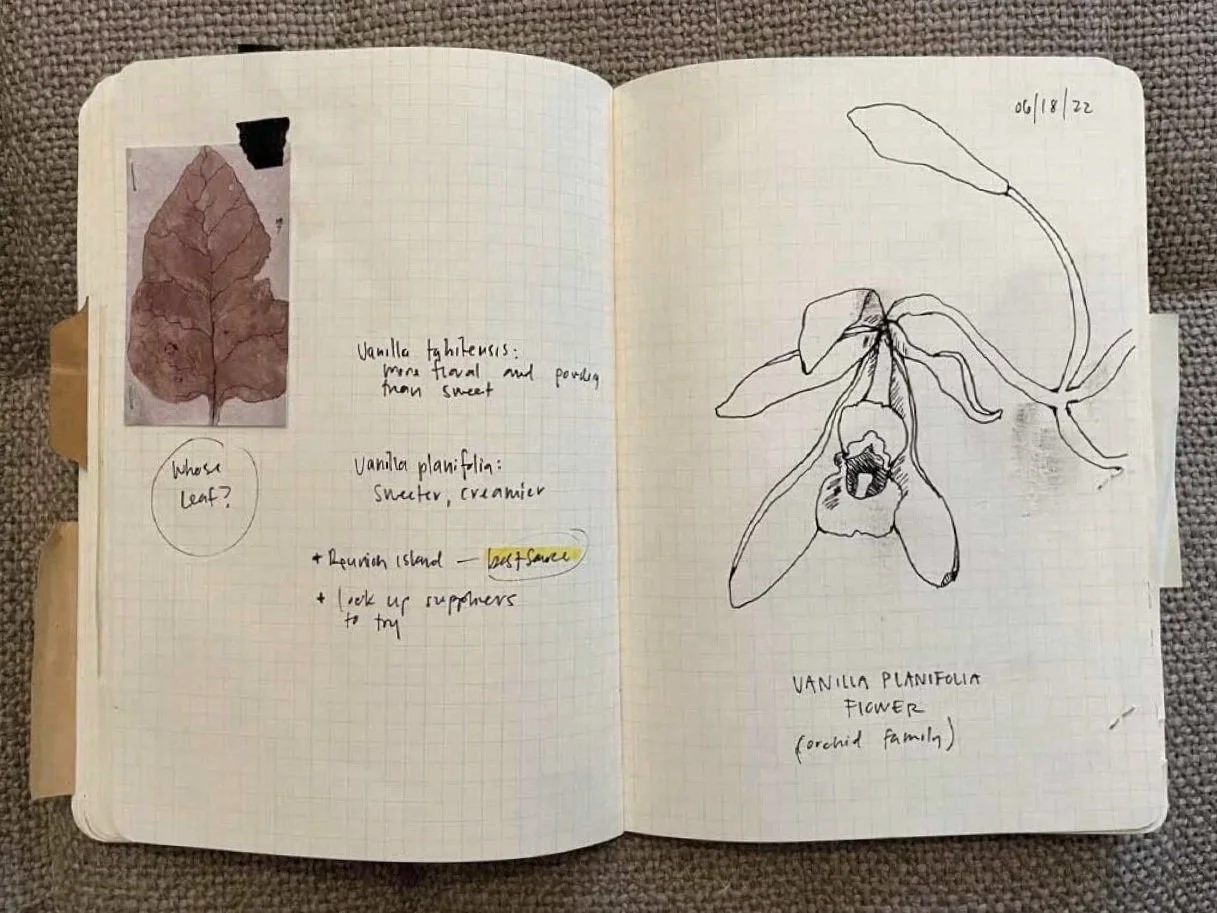 Whose
Leaf?
Vanilla tahitensis:
more floral and powdery
than sweet
Vanilla planifolia:
sweeter, creamier
+ Reunion island — best source
+ look up suppliers
to try
06/18/22
VANILLA PLANIFOLIA
FLOWER
(orchid family)